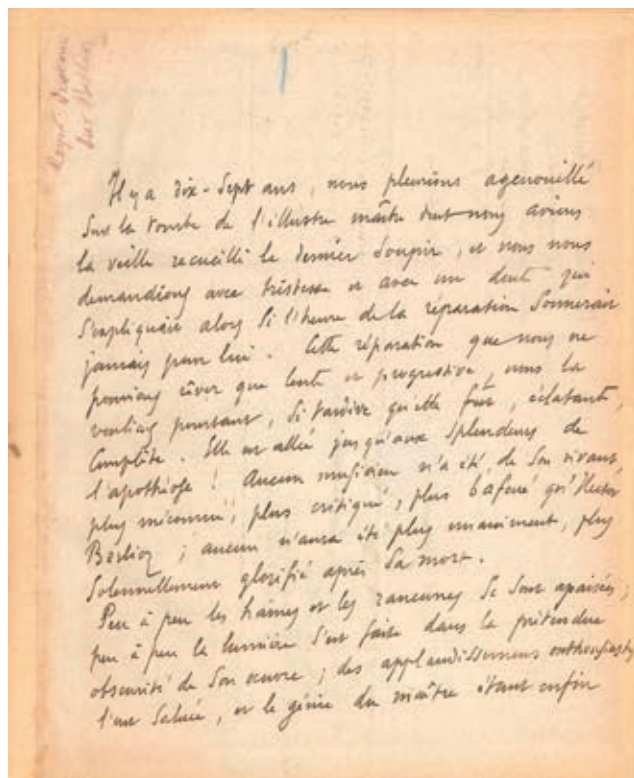 Reyer. Discours
sur Berlioz
Il y a dix-sept ans, nous pleurions agenouillé
sur la tombe de l'illustre maître dont nous avions
la veille recueilli le dernier soupir, et nous nous
demandions avec tristesse et avec un doute qui
s'expliquait alors si l'heure de la réparation sonnerait
jamais pour lui. Cette réparation que nous ne
pouvions rêver que lente et progressive, nous la
voulions pourtant, si tardive qu'elle fut, éclatante,
complète. Elle est allée jusqu'aux splendeurs de
l'apothéose ! Aucun musicien n'a été, de son vivant
plus méconnu, plus critiqué, plus bafoué qu'Hector
Berlioz ; aucun n'aura été plus unanimement, plus
solennellement glorifié après sa mort.
Peu à peu les haines et les rancunes se sont apaisées ;
peu à peu la lumière s'est faite dans la prétendue
obscurité de son œuvre ; des applaudissements enthousiastes
l'ont saluée, et le génie du maître étant enfin